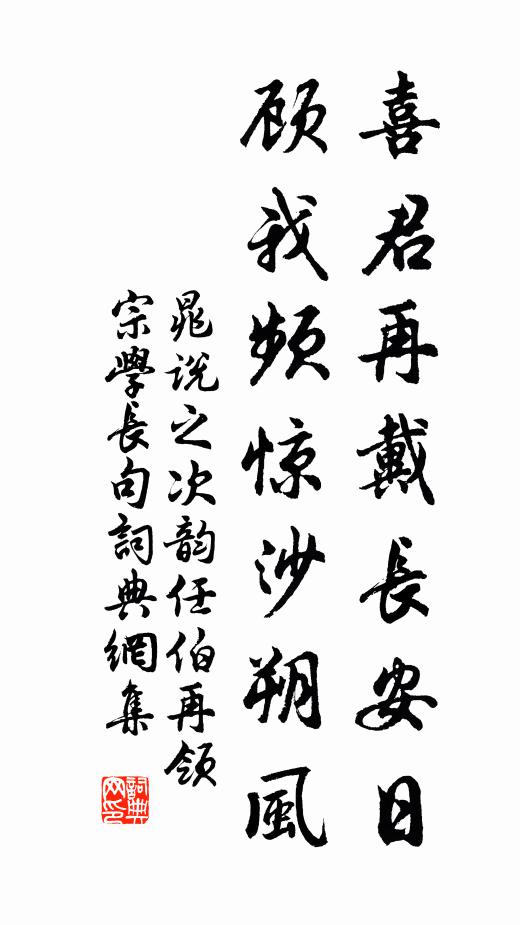 喜君再戴長安日
顾我频惊沙朔風
晁說之次韵任伯再领
宗學長句詞典網集
詞典
网印